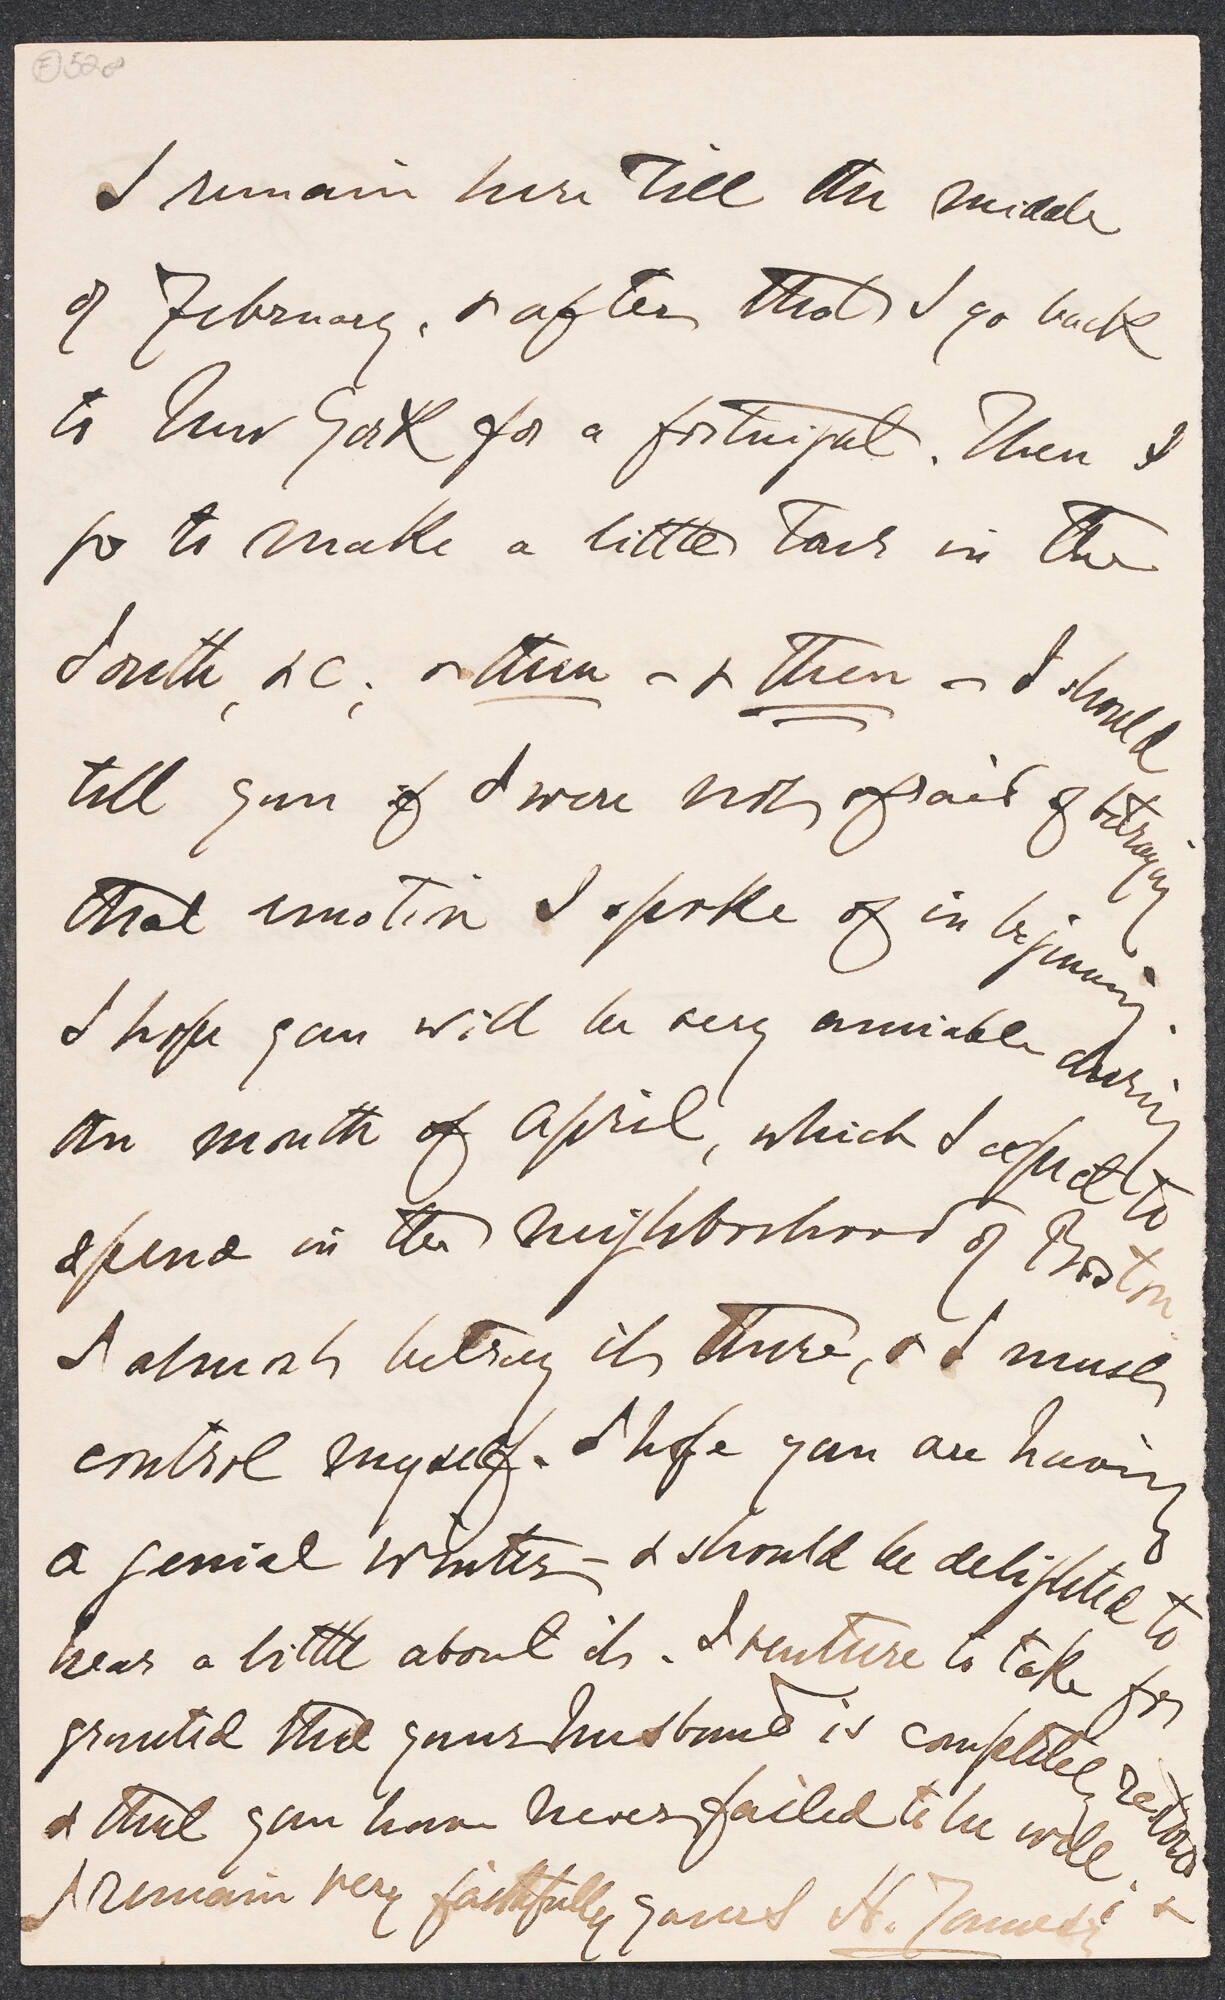 (F) 528
I remain here till the middle
of February, & after that I go back
to New York for a fortnight. Then I
go to make a little tour in the
South, &c; & then — & then — I should
tell you if I were not afraid of betraying
that emotion I spoke of in beginning.
I hope you will be very amiable during
the month of April, which I expect to
spend in the neighborhood of Boston.
I almost betray it there, & I must
control myself. I hope you are having
a genial winter — & should be delighted to
hear a little about it. I venture to take for
granted that your husband is completely restored
& that you have never failed to be well; &
I remain very faithfully yours H. James